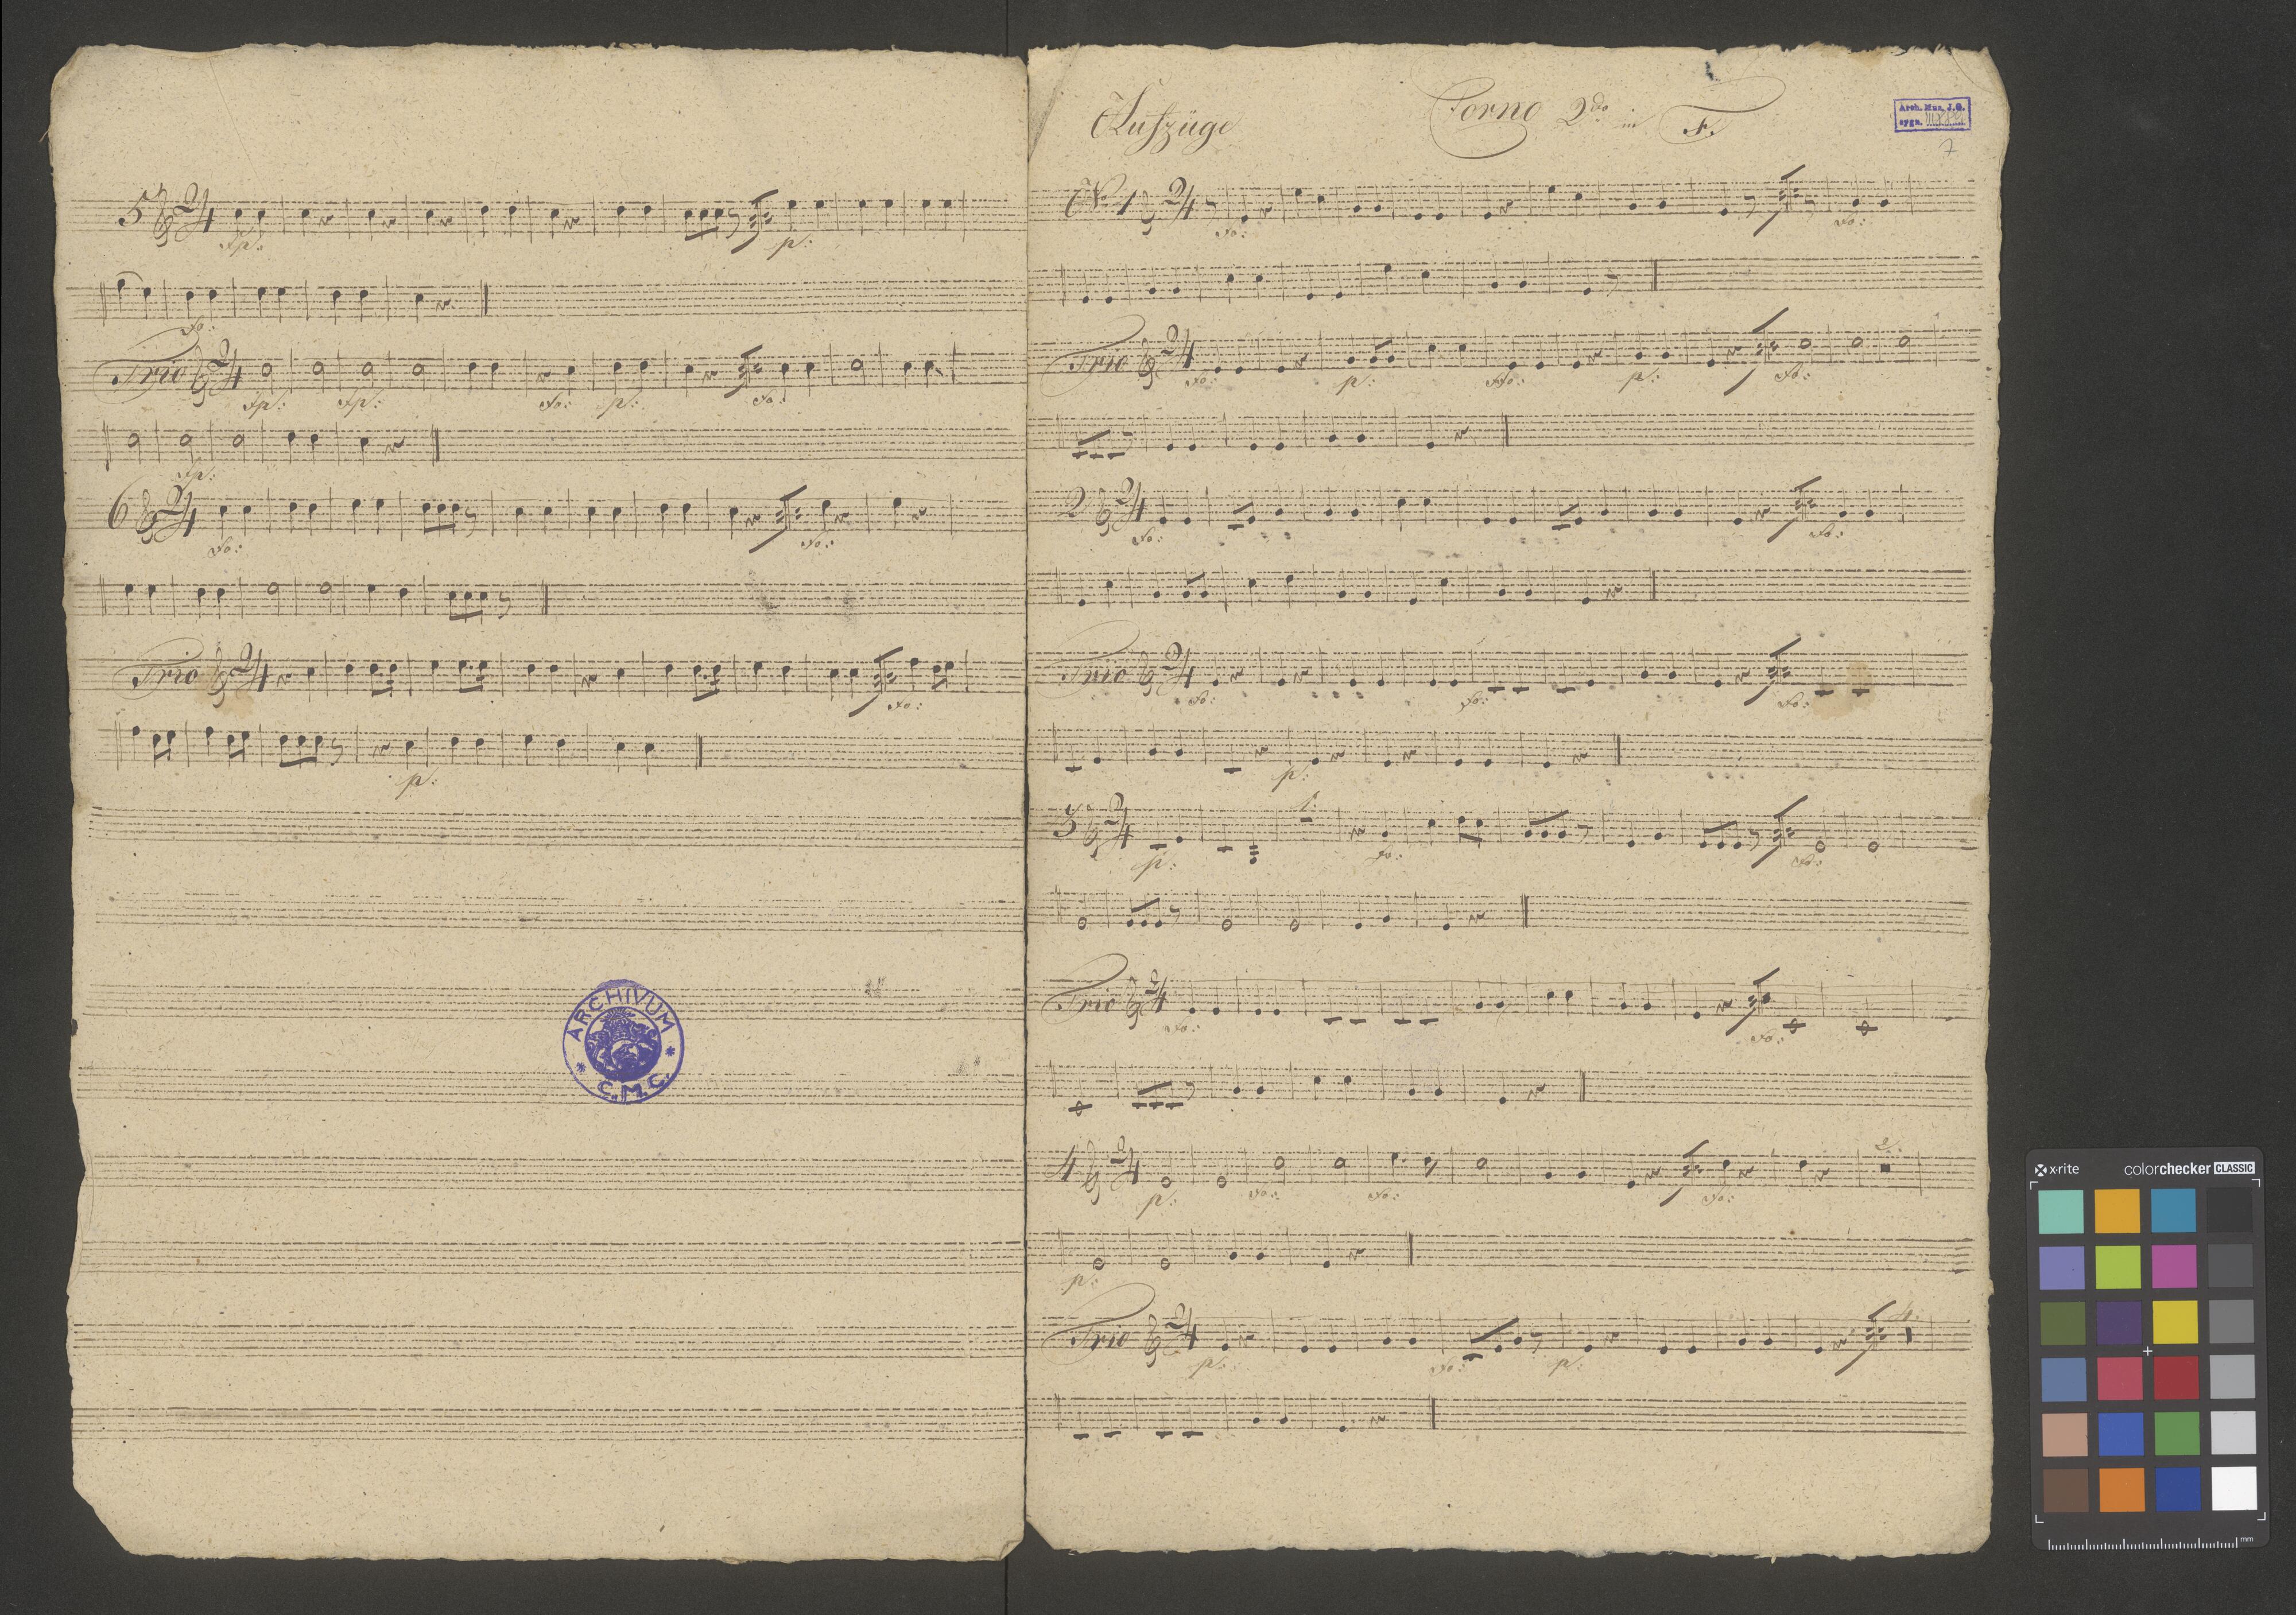 5 2/4
fp: p:
fo:
Trio 2/4
fp: fp: fo: p: fo:
fp:
6 2/4
fo: fo:
Trio 2/4
fo:
p:
ARCHIVUM
C.M.C.
Aufzüge Corno 2do in F.
Arch. Mus. J.G.
sygn.
7
No 1 2/4
fo: fo:
Trio 2/4
fo: p: ffo: p: fo:
2 2/4
fo: fo:
Trio 2/4
fo: fo: fo:
p:
3 2/4 1.
p: fo: fo:
Trio 2/4
fo: fo:
4 2/4 2.
p: fo: fo: fo:
p:
Trio 2/4 4.
p: fo: p:
x-rite colorchecker CLASSIC
mm